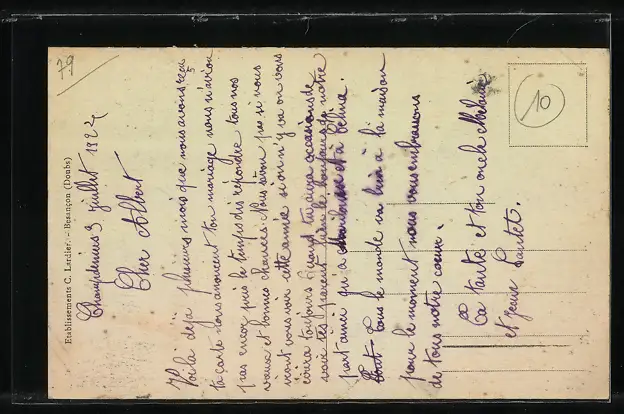 79
10
Etablissements C. Lardier. - Besançon (Doubs)
Champdeniers 3 juillet 1927
Cher Albert
Voilà déja plusieurs mois que nous avons reçu
ta carte nous anoncent ton mariage nous n'avion
pas encor pris le temps des repondre tous nos
vœux et bonnes chances. Nous savon pas si nous
viont vous voir cette année si on n'y va on vous
toujours quand tu aura occasions de
voir tes parent bien le bonjours de notre
part ainsi qu'a et à Célina.
Tout le monde va bien à la maison
pour le moment nous vous embrassons
de tous notre cœur.
Ta tante et ton oncle
et Jeune